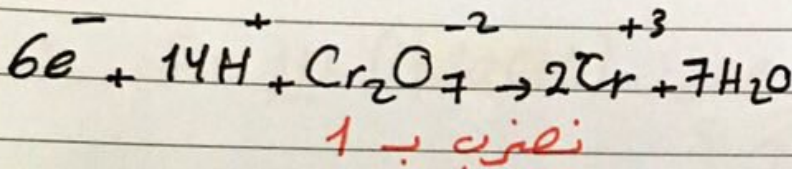 6e⁻ + 14H⁺ + Cr₂O₇⁻² → 2Cr⁺³ + 7H₂O
نضرب بـ 1